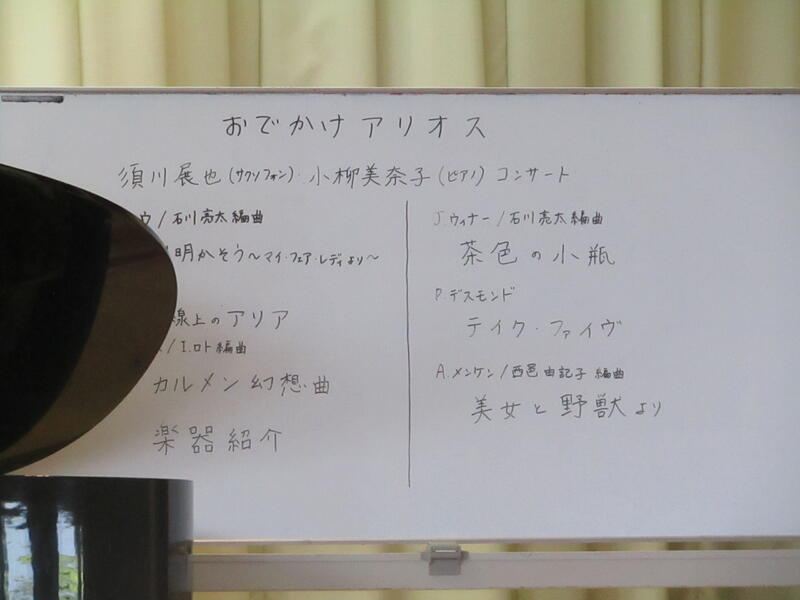 おでかけアリオス
須川展也(サクソフォン)・小柳美奈子(ピアノ)コンサート
ウ/石川亮太編曲
明かそう〜マイ・フェア・レディより〜
線上のアリア
/I.ロト編曲
カルメン幻想曲
楽器紹介
J.ウィナー/石川亮太編曲
茶色の小瓶
P.デスモンド
テイク・ファイヴ
A.メンケン/西邑由記子編曲
美女と野獣より